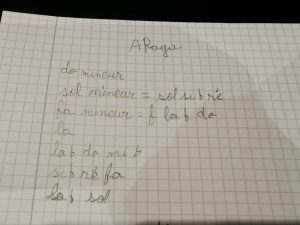 A Raya
do mineur
sol mineur = sol si♭ ré
fa mineur = f la♭ do
la
la♭ do mi♭
si♭ ré fa
la♭ sol